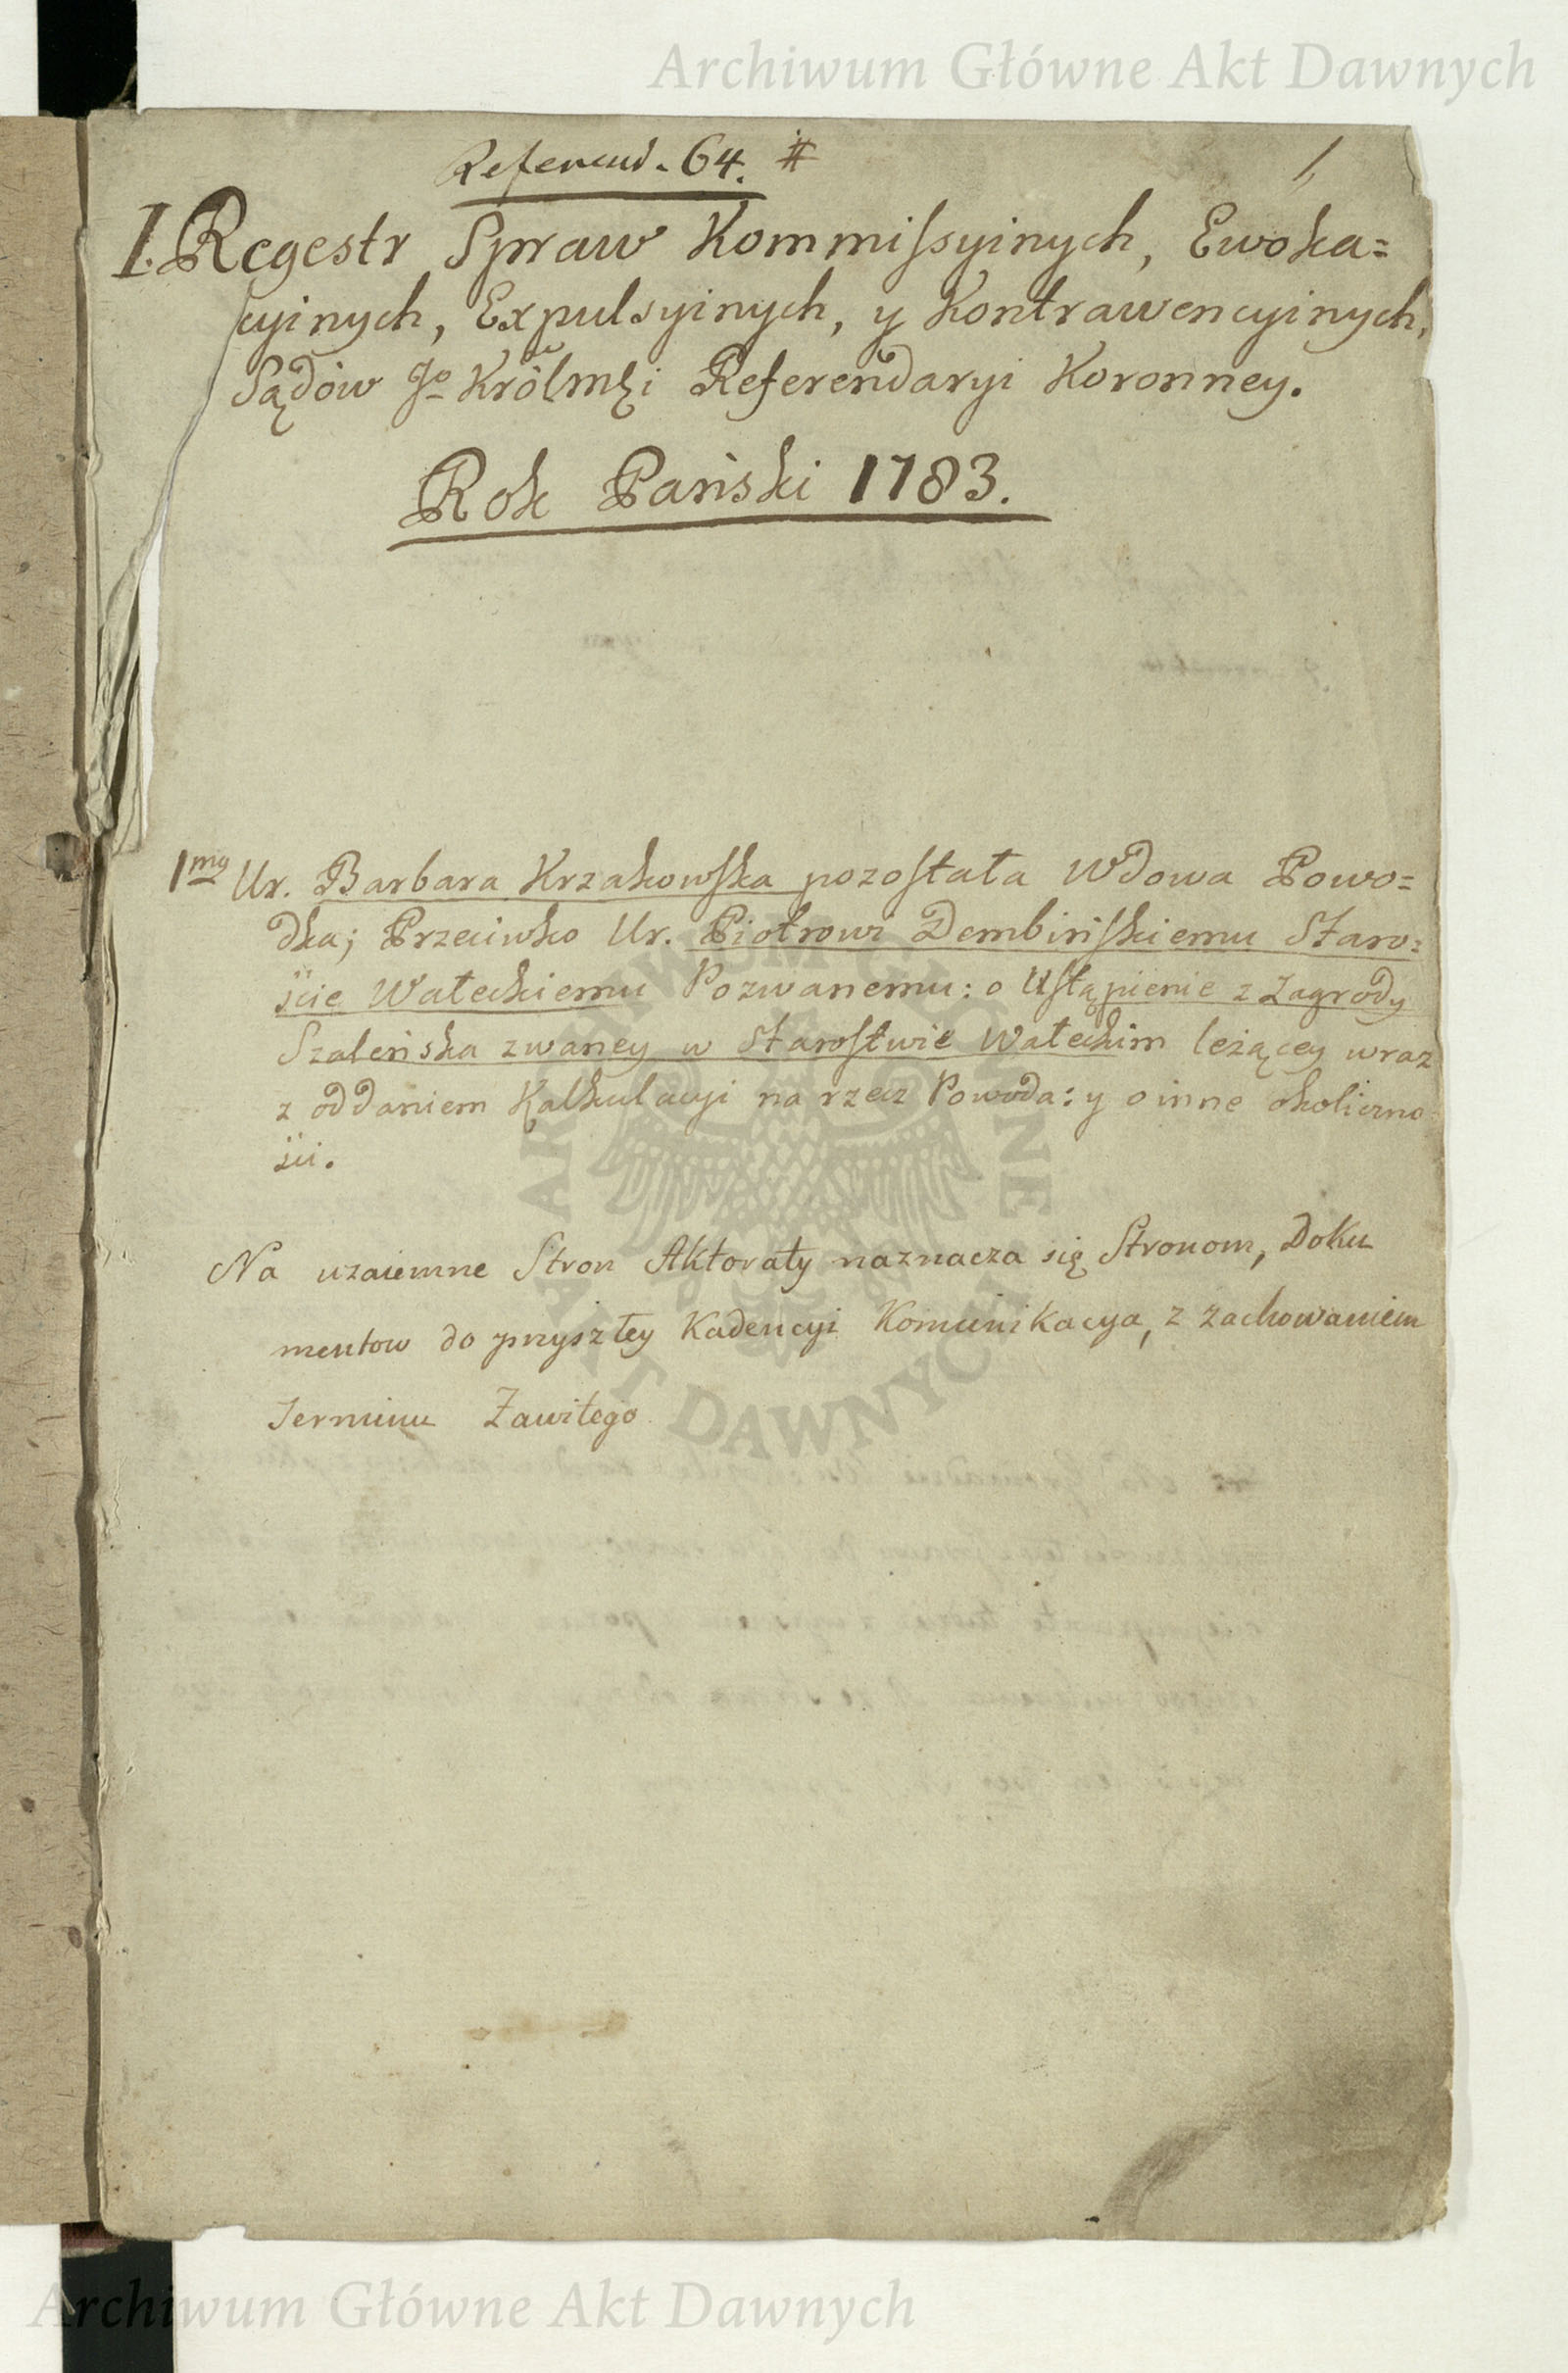 Archiwum Główne Akt Dawnych
Referend. 64. #
1
I. Regestr Spraw Kommissyinych, Ewoka=
cyinych, Expulsyinych, y Kontrawencyinych,
Sądów Jo Królmci Referendaryi Koronney.
Rok Pański 1783.
1mo Ur. Barbara Krzakowska pozostała Wdowa Powo=
dka; Przeciwko Ur. Piotrowi Dembińskiemu Staro=
ście Wałeckiemu Pozwanemu: o Ustąpienie z Zagrody
Szaleńska zwaney w Starostwie Wałeckim leżącey wraz
z oddaniem Kalkulacyi na rzecz Powoda: y o inne okoliczno=
ści.
Na wzaiemne Stron Aktoraty naznacza się Stronom, Doku
mentow do przyszłey Kadencyi Komunikacya, z zachowaniem
Terminu Zawitego
ARCHIWUM GŁÓWNE
AKT DAWNYCH
Archiwum Główne Akt Dawnych